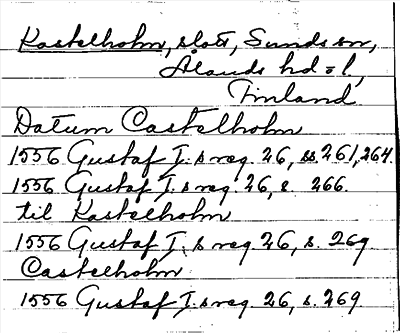 Kastelholm, slott, Sunds sn,
Ålands hd o l,
Finland
Datum Castelholm
1556 Gustaf I:s reg. 26, ss. 261, 264.
1556 Gustaf I:s reg. 26, s. 266.
til Kastelholm
1556 Gustaf I:s reg. 26, s. 269
Castelholm
1556 Gustaf I:s reg. 26, s. 269